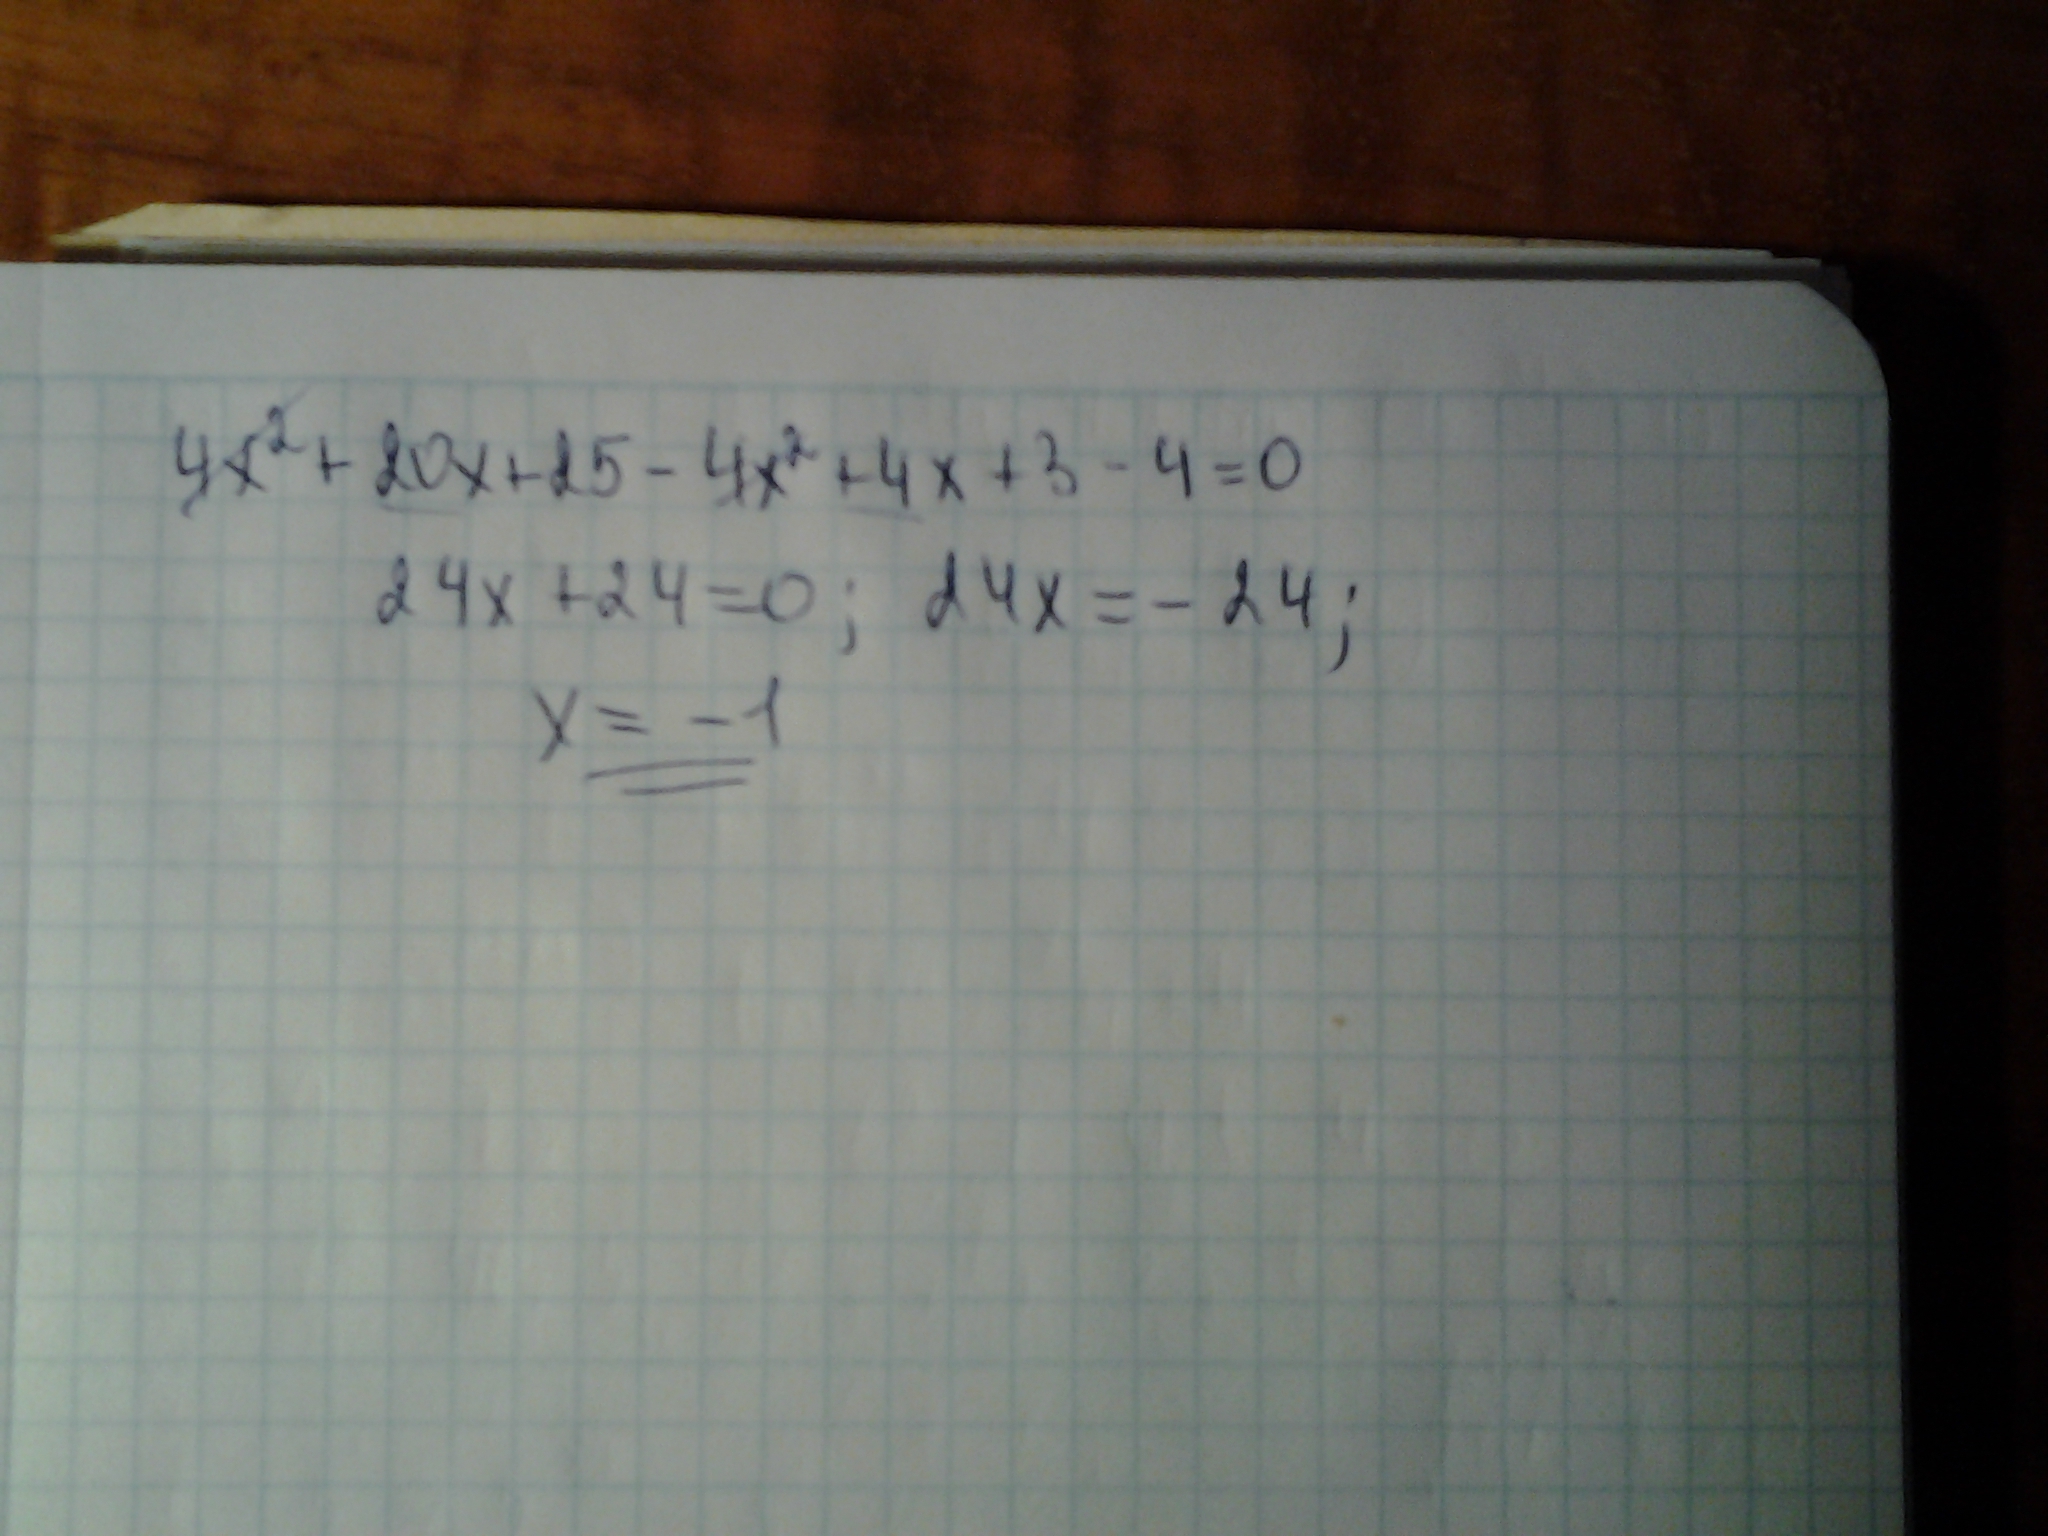 4x² + 20x + 25 - 4x² + 4x + 3 - 4 = 0
24x + 24 = 0; 24x = - 24;
x = -1